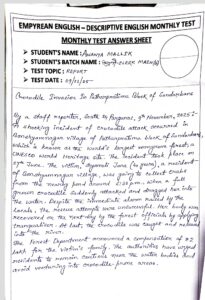 EMPYREAN ENGLISH – DESCRIPTIVE ENGLISH MONTHLY TEST
MONTHLY TEST ANSWER SHEET
➤ STUDENT'S NAME: MALLIK
➤ STUDENT'S BATCH NAME: CLERK MAINS
➤ TEST TOPIC: REPORT
➤ TEST DATE:
Crocodile Invasion In Patharpratima Block of Sundarbans
By a staff reporter, South 24 Parganas, November, 2025:
A shocking incident of crocodile attack occurred in
village of Patharpratima block of Sundarbans,
which is known as the world's longest mangrove forest, a
UNESCO world heritage site. The incident took place on
June. The victim, a resident
of village, was going to collect crabs
from the nearby pond around 2:30 pm, when a full
grown crocodile suddenly attacked and dragged her into
the water. Despite the immediate alarm raised by the
locals, the rescue attempts were unsuccessful. Her body was
recovered on the next day by the forest officials by applying
tranquilizer. At last, the crocodile was caught and released
into the river.
The Forest Department announced a compensation of ₹2
lakh for the victim's family. The authorities have urged
residents to remain cautious near the water bodies and
avoid venturing into crocodile prone areas.